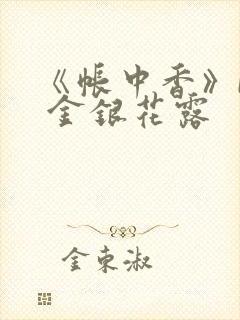 《帐中香》
金银花露
金束淑